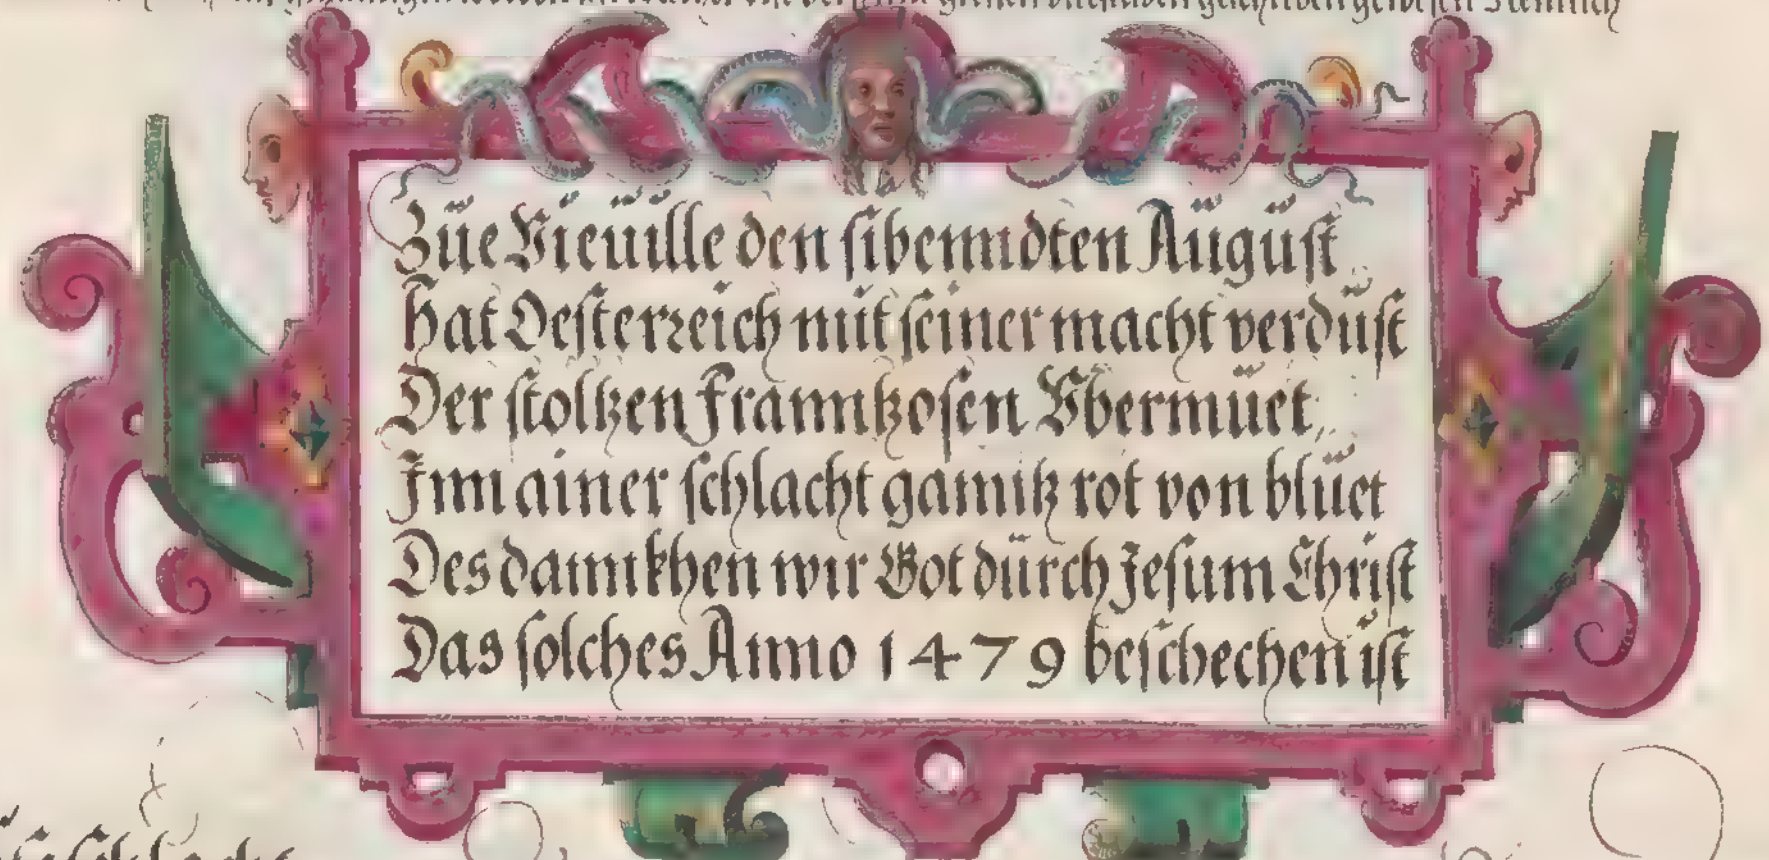 Züe Vieüille den sibenndten Aügüst
hat Oesterreich mit seiner macht verdüst
Der stoltzen Franntzosen Vbermüet,
Jnn ainer schlacht ganntz rot von blüet
Des dannkhen wir Got dürch Jesum Christ
Das solches Anno 1479 beschechen ist